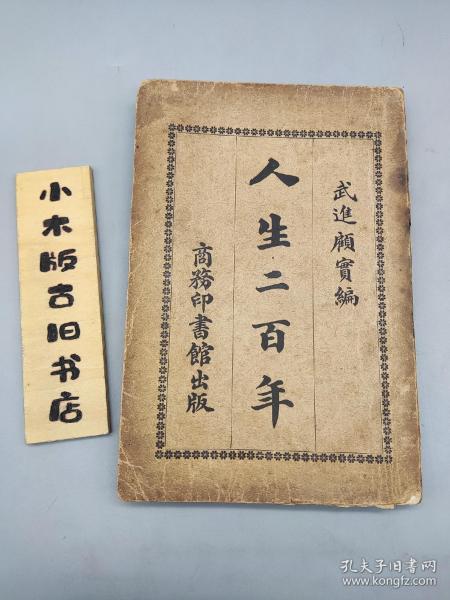 武進顧實編
人生二百年
商務印書館出版
小木版古旧书店
孔夫子旧书网
www.kongfz.com